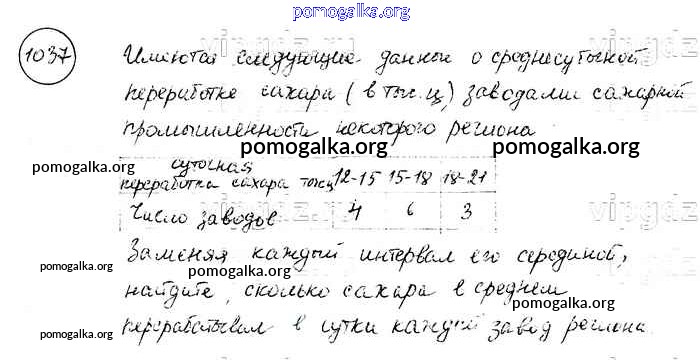 pomogalka.org
1037 Имеются следующие данные о среднесуточной
pomogalka.org
переработке сахара (в тыс.ц) заводами сахарной
промышленности некоторого региона
pomogalka.org pomogalka.org pomogalka.org
суточная
переработка сахара тыс.ц 12-15 15-18 18-21
Число заводов 4 6 3
Заменяя каждый интервал его серединой,
pomogalka.org pomogalka.org
найдите, сколько сахара в среднем
pomogalka.org
перерабатывал в сутки каждый завод региона.
pomogalka.org